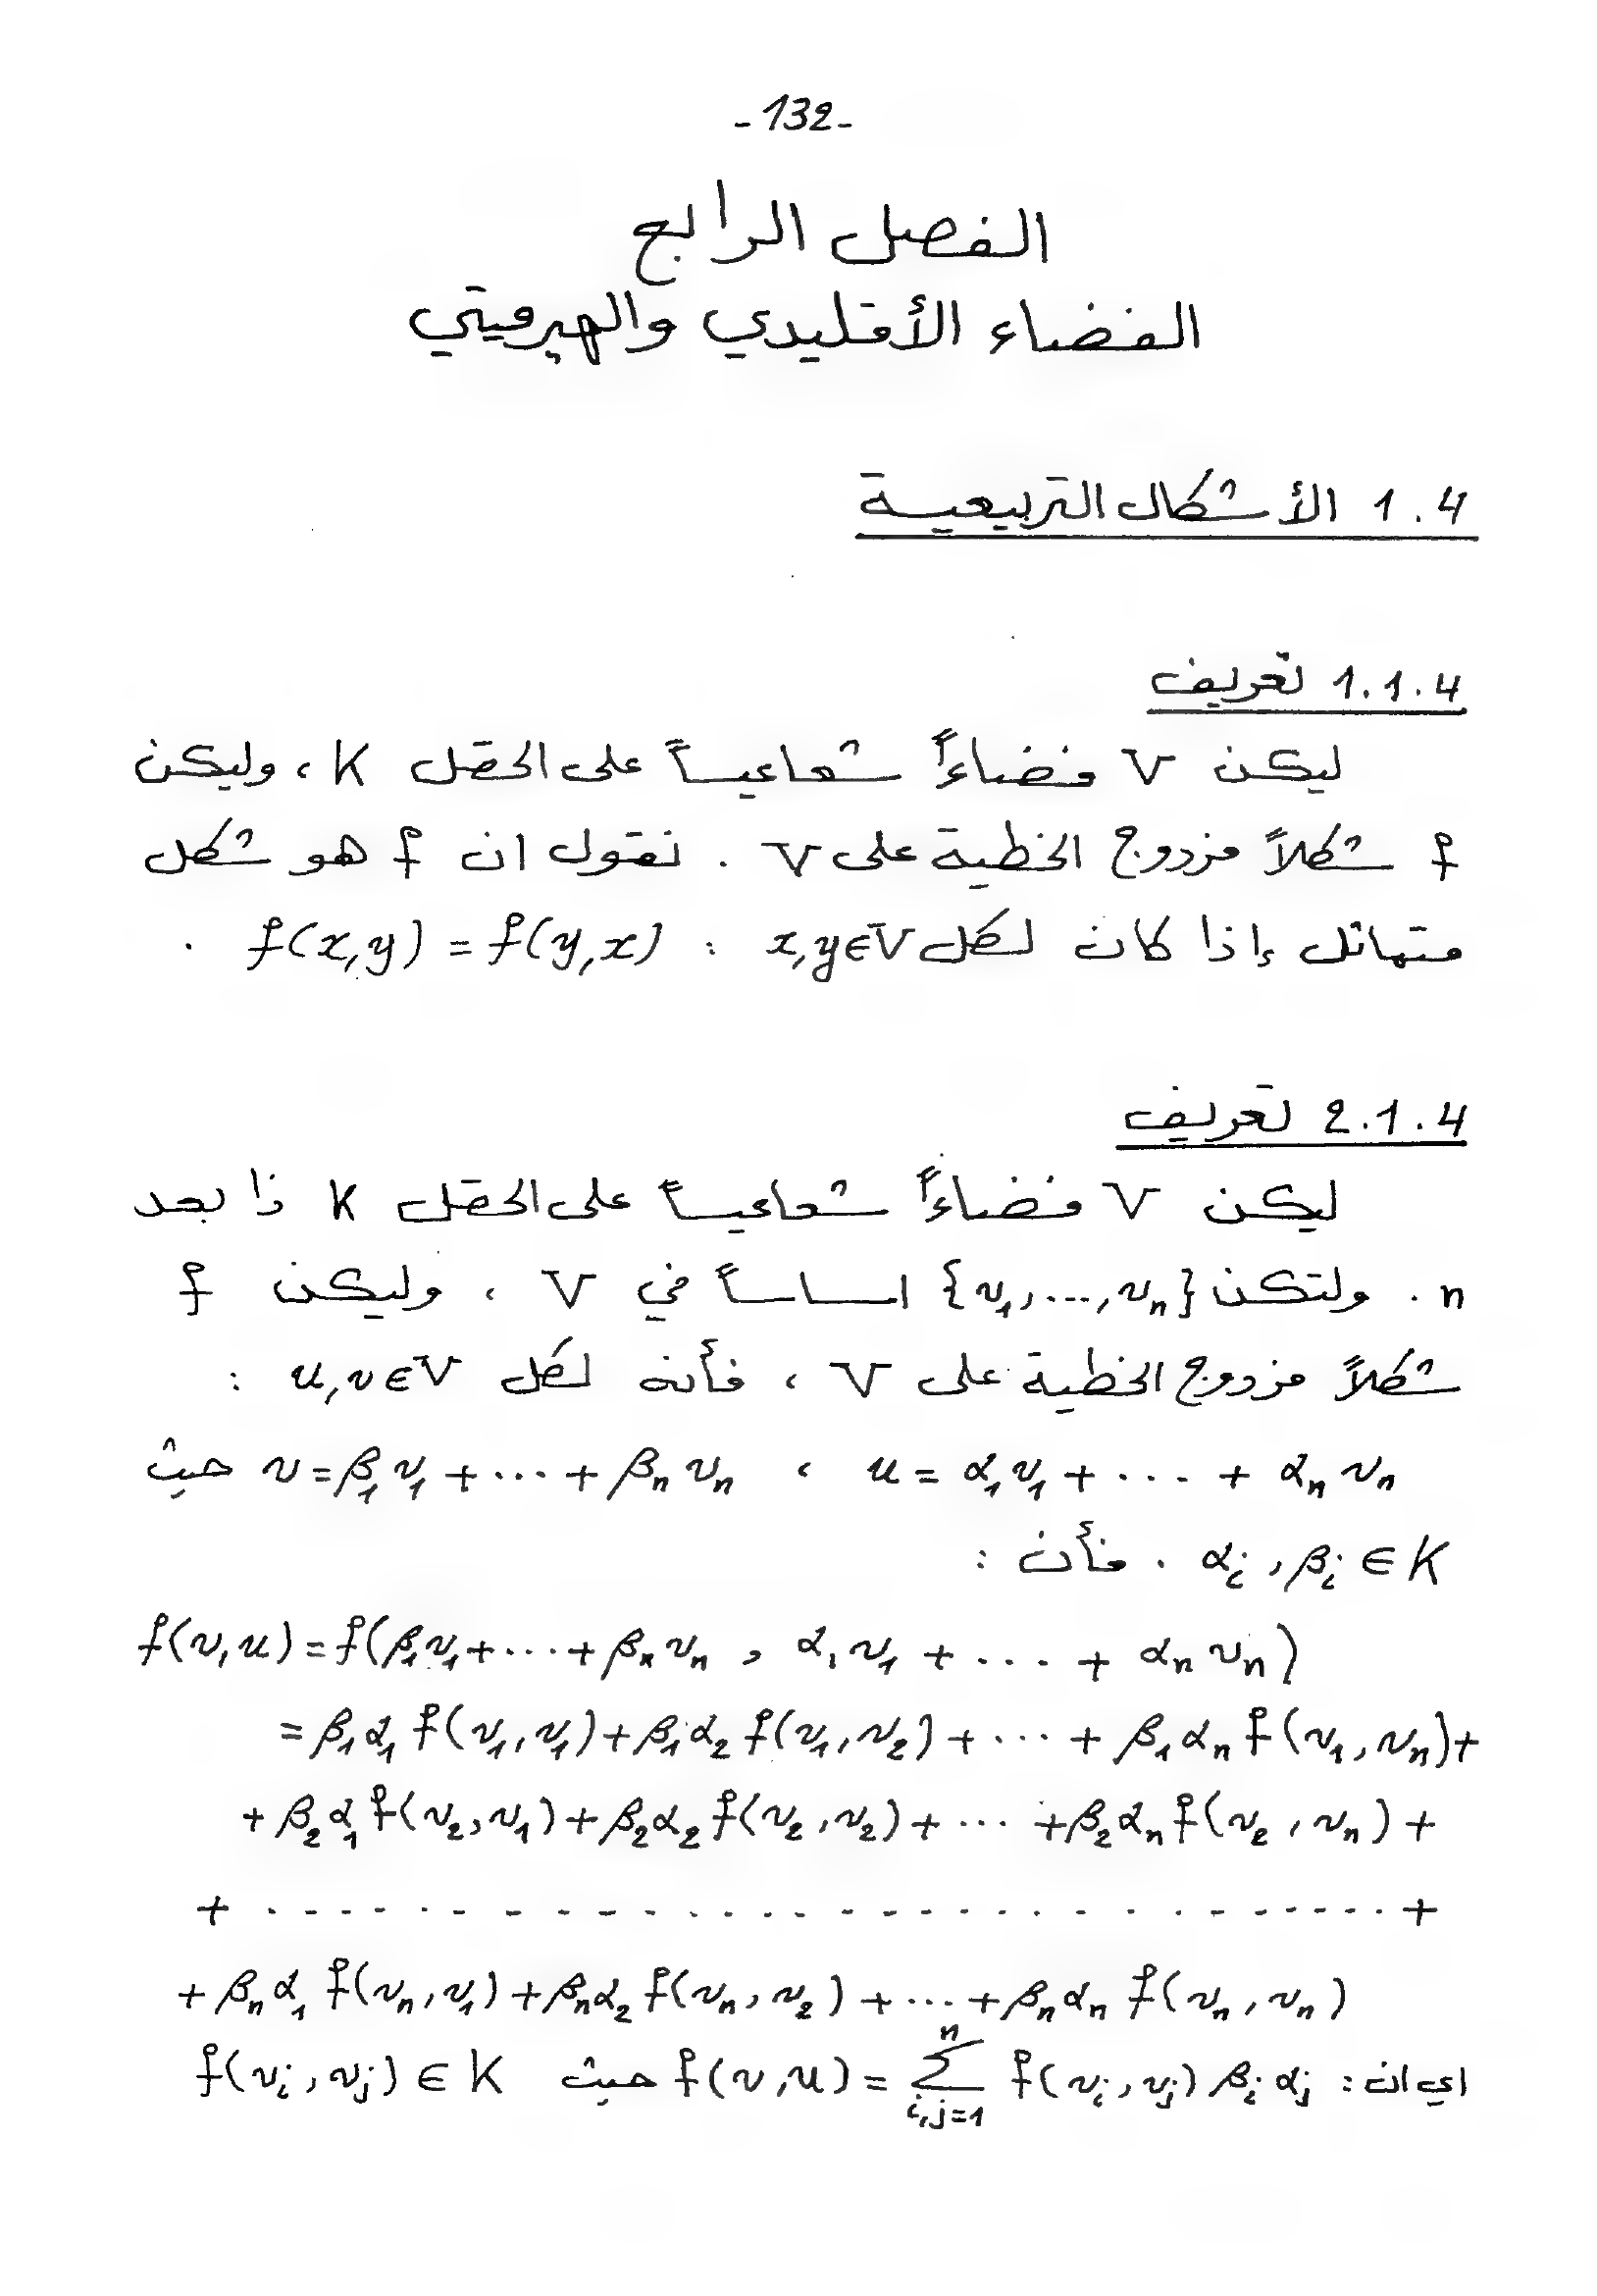 -132-
الفصل الرابع
الفضاء الأقليدي والهرميتي
1.4 الأشكال التربيعية
1.1.4 تعريف
ليكن V فضاءاً شعاعياً على الحقل K ، وليكن
f شكلاً مزدوج الخطية على V . نقول ان f هو شكل
متماثل إذا كان لكل x,y∈V : f(x,y) = f(y,x) .
2.1.4 تعريف
ليكن V فضاءاً شعاعياً على الحقل K ذا بعد
n . ولتكن {v₁,...,vₙ} اساساً في V ، وليكن f
شكلاً مزدوج الخطية على V ، فأنه لكل u,v∈V :
u = α₁v₁ + ... + αₙvₙ ، v = β₁v₁ + ... + βₙvₙ حيث
αᵢ , βᵢ ∈ K . فأن :
f(v,u) = f(β₁v₁ + ... + βₙvₙ , α₁v₁ + ... + αₙvₙ)
= β₁α₁ f(v₁,v₁) + β₁α₂ f(v₁,v₂) + ... + β₁αₙ f(v₁,vₙ) +
+ β₂α₁ f(v₂,v₁) + β₂α₂ f(v₂,v₂) + ... + β₂αₙ f(v₂,vₙ) +
+ . . . . . . . . . . . . . . . . . . . . . . . . . . . . . . +
+ βₙα₁ f(vₙ,v₁) + βₙα₂ f(vₙ,v₂) + ... + βₙαₙ f(vₙ,vₙ)
اي ان : f(v,u) = ∑ⁿᵢ,ⱼ₌₁ f(vᵢ,vⱼ) βᵢ αⱼ حيث f(vᵢ,vⱼ) ∈ K